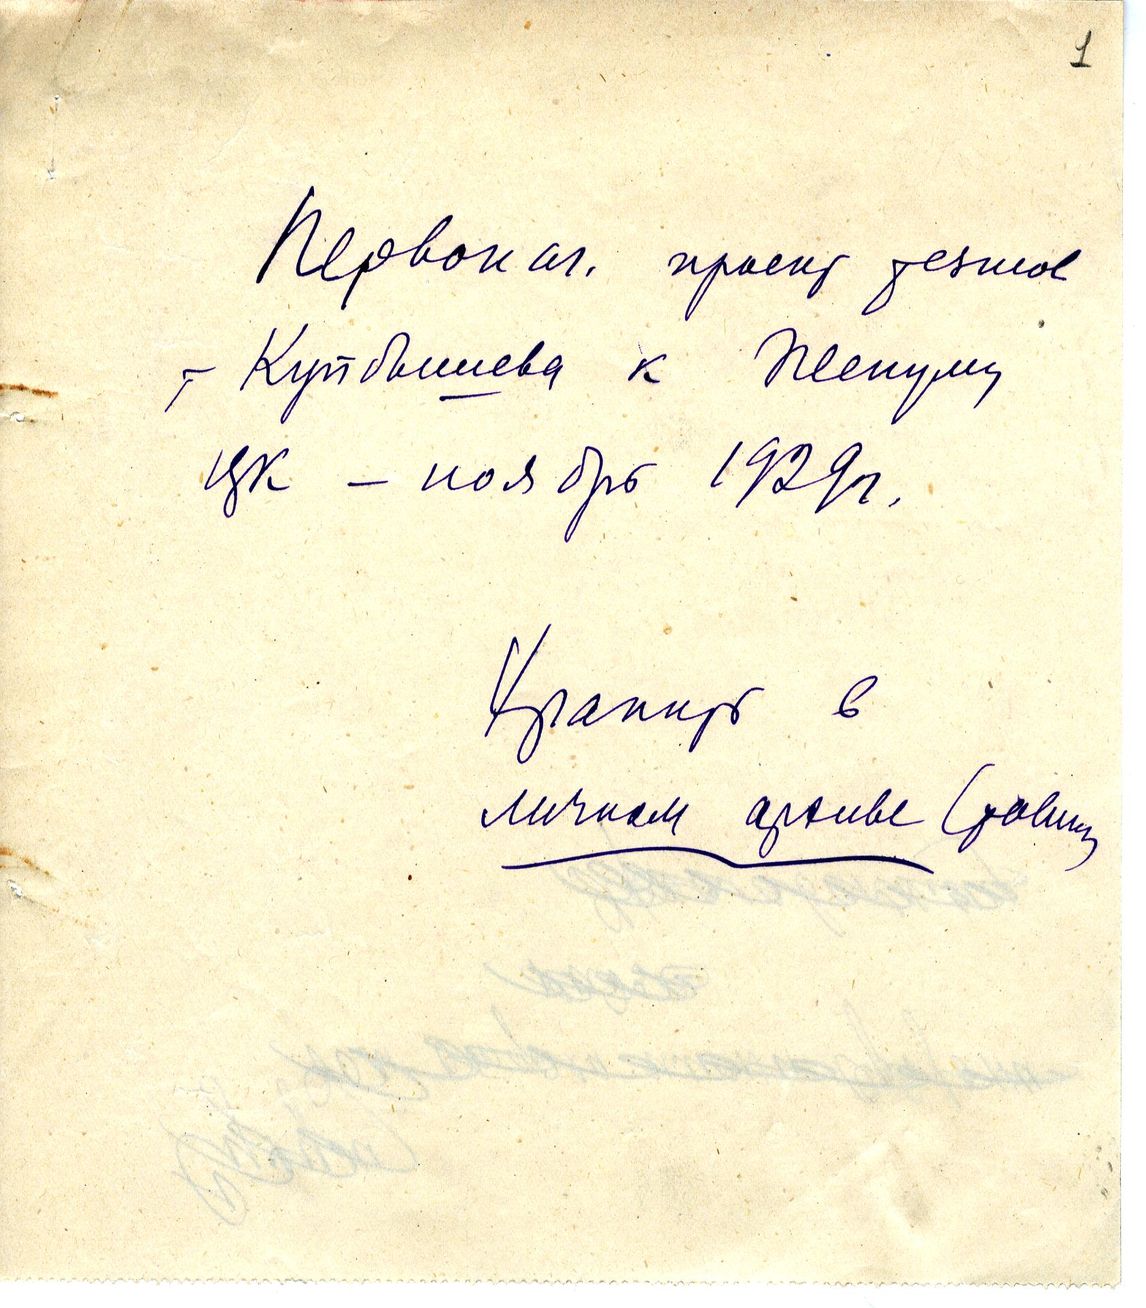 1
Первонач. проект тезисов
т Куйбышева к Пленуму
ЦК — ноябрь 1929г.
Хранить в
личном архиве